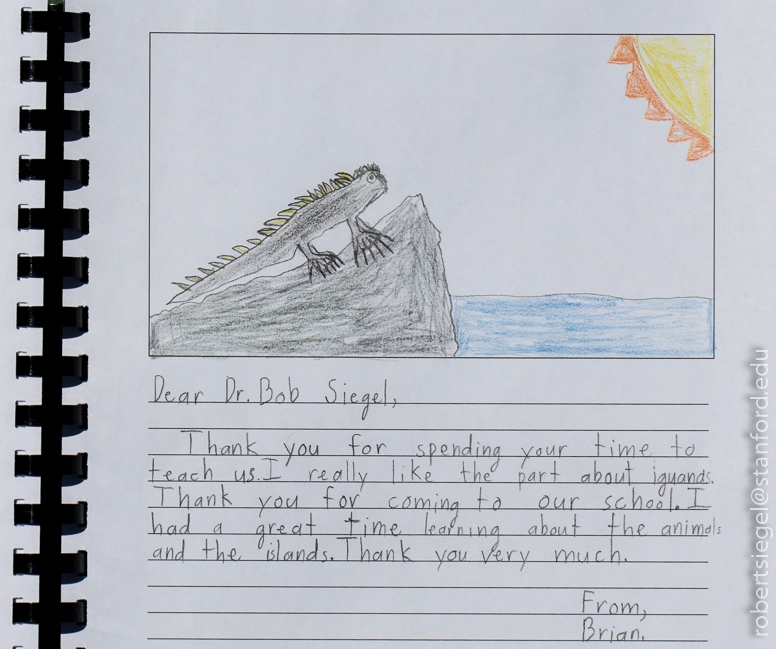 Dear Dr. Bob Siegel,
Thank you for spending your time to
teach us. I really like the part about iguands.
Thank you for coming to our school. I
had a great time learning about the animals
and the islands. Thank you very much.
From,
Brian.
robertsiegel@stanford.edu